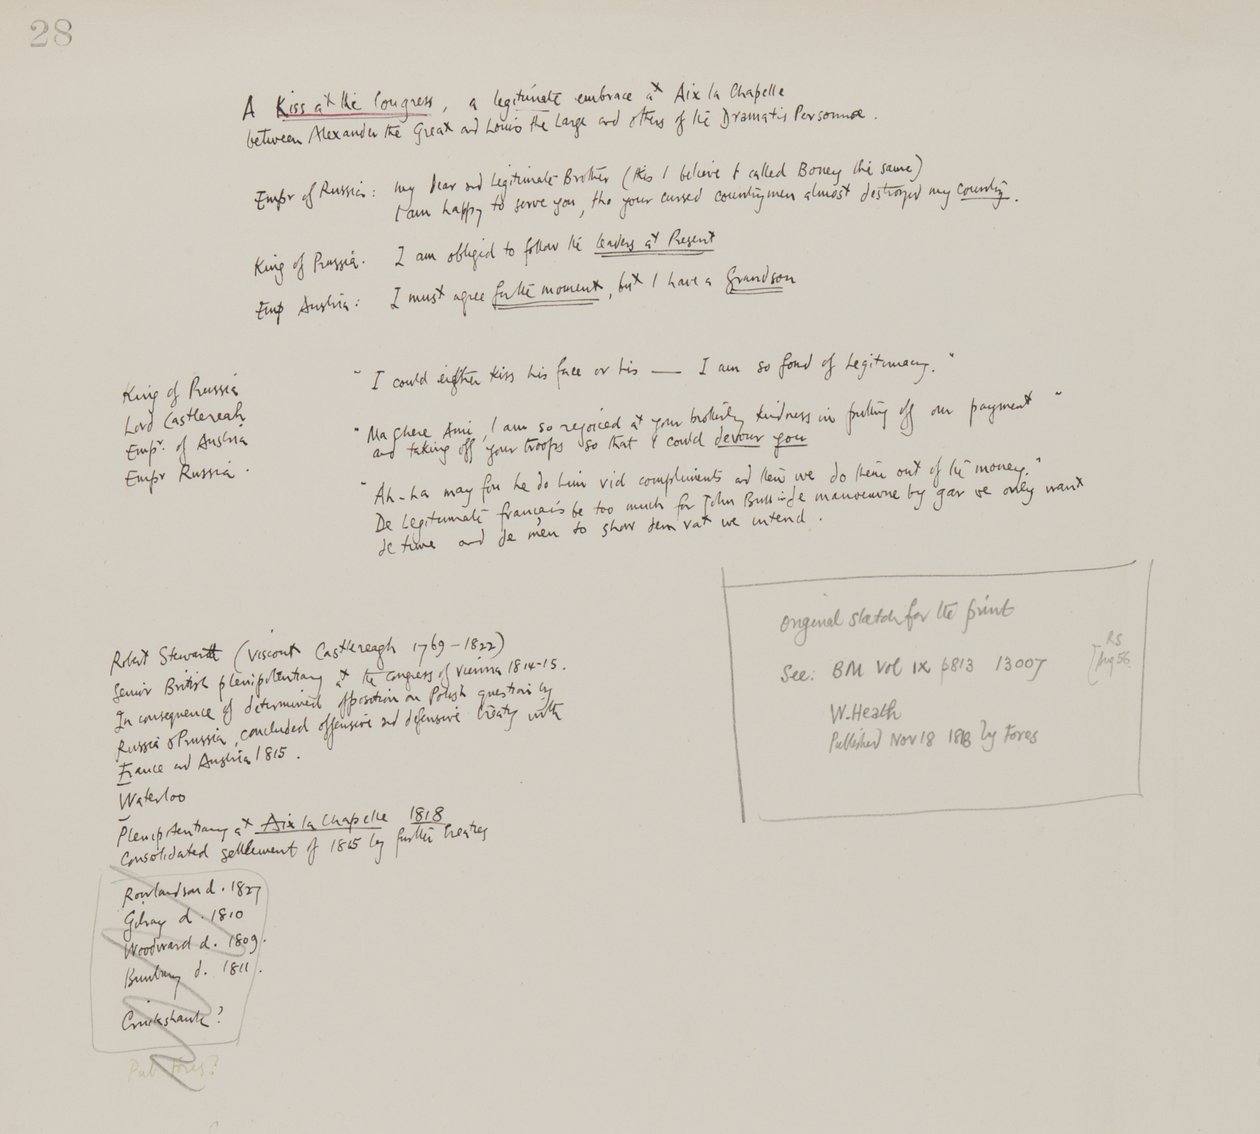 28
A Kiss at the Congress, a legitimate embrace at Aix la Chapelle
between Alexander the Great and Louis the Large and others of the Dramatis Personnae.
Empr of Russia: my dear and Legitimate Brother (tho I believe I called Boney the same)
I am happy to serve you, tho your cursed countrymen almost destroyed my country.
King of Prussia. I am obliged to follow the leaders at Present
Emp Austria: I must agree for the moment, but I have a Grandson
King of Prussia
Lord Castlereah
Empr. of Austria
Empr Russia.
"I could eighther kiss his face or his — I am so fond of Legitimacy."
"Ma Chere Ami, I am so rejoiced at your brotherly kindness in putting off our payment"
and taking off your troops so that I could devour you
"Ah-ha may foi he do him vid compliments and then we do them out of the money."
De Legitimate français be too much for John Bull in de manoeuvre by gar ve only want
de time and de men to show dem vat we intend.
Original sketch for the print
See: BM Vol IX p813 13007
W. Heath
Published Nov 18 1818 by Fores
RS
Aug 56
Robert Stewartt (Viscount Castlereagh 1769–1822)
Senior British plenipotentiary at the Congress of Vienna 1814–15.
In consequence of determined opposition on Polish question by
Russia & Prussia, concluded offensive and defensive treaty with
France and Austria 1815.
Waterloo
Plenipotentiary at Aix la Chapelle 1818
Consolidated settlement of 1815 by further treaties
Rowlandson d. 1827
Gilray d. 1810
Woodward d. 1809.
Bunbury d. 1811.
Cruickshank?
Pub Fores?